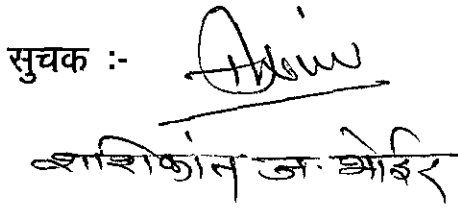 सुचक :-
शशिकांत ज. भोईर